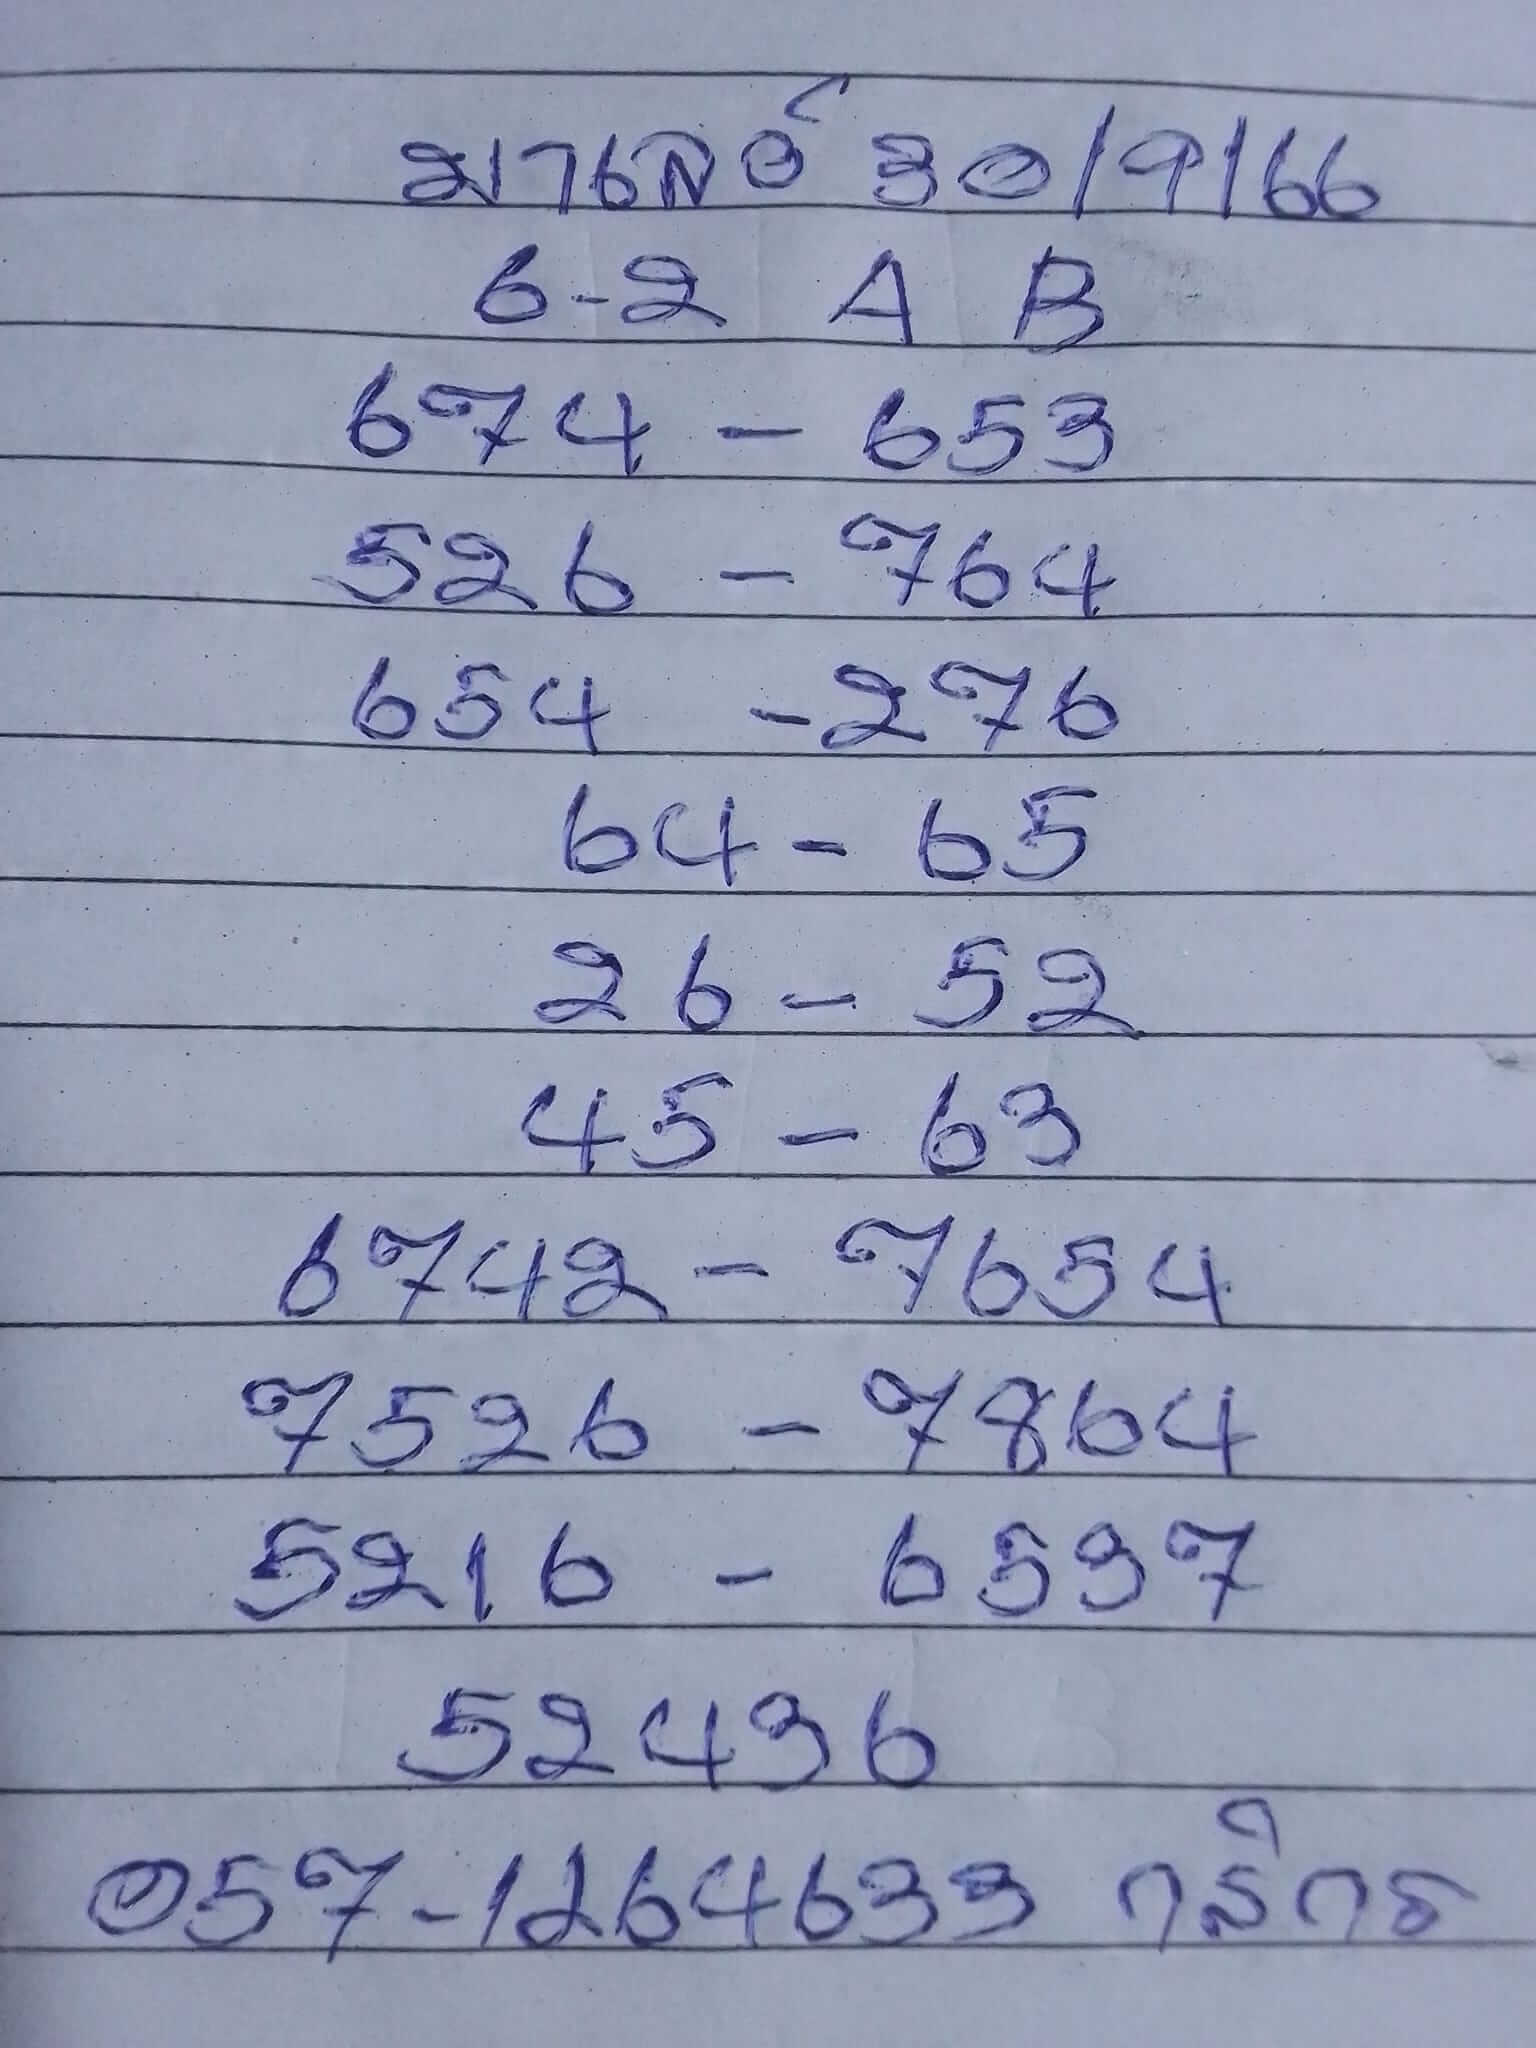 มาเลย์ 30/9/66
6-2 A B
674 - 653
526 - 764
654 - 276
64 - 65
26 - 52
45 - 63
6742 - 7654
7526 - 7864
5216 - 6537
52436
057-1264633 กสิกร